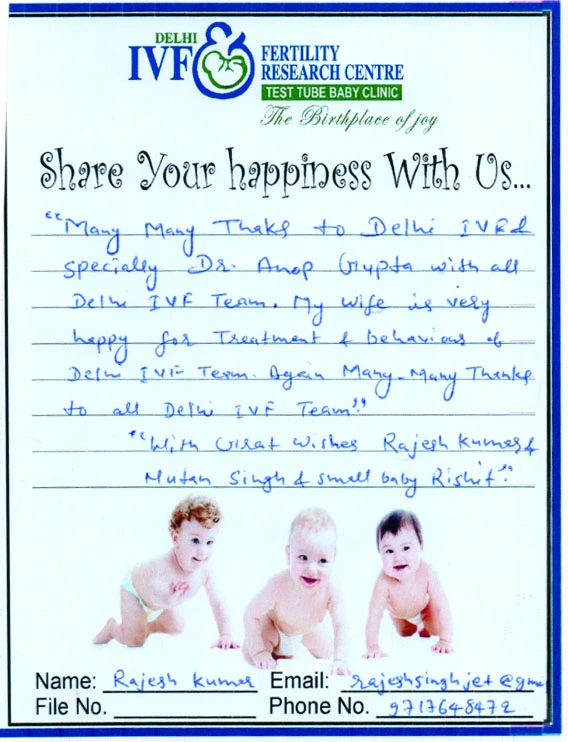 DELHI
IVF
FERTILITY
RESEARCH CENTRE
TEST TUBE BABY CLINIC
The Birthplace of joy
Share Your happiness With Us...
"Many Many Thaks to Delhi IVF &
specially Dr. Anop Gupta with all
Delhi IVF Team. My wife is very
happy for Treatment & behavious of
Delhi IVF Team. Again Many-Many Thanks
to all Delhi IVF Team".
"With Grat wishes Rajesh kumar &
Singh & small baby Rishit".
Name: Rajesh kumar Email: rajeshsinghjet@gma
File No. Phone No. 9717648472